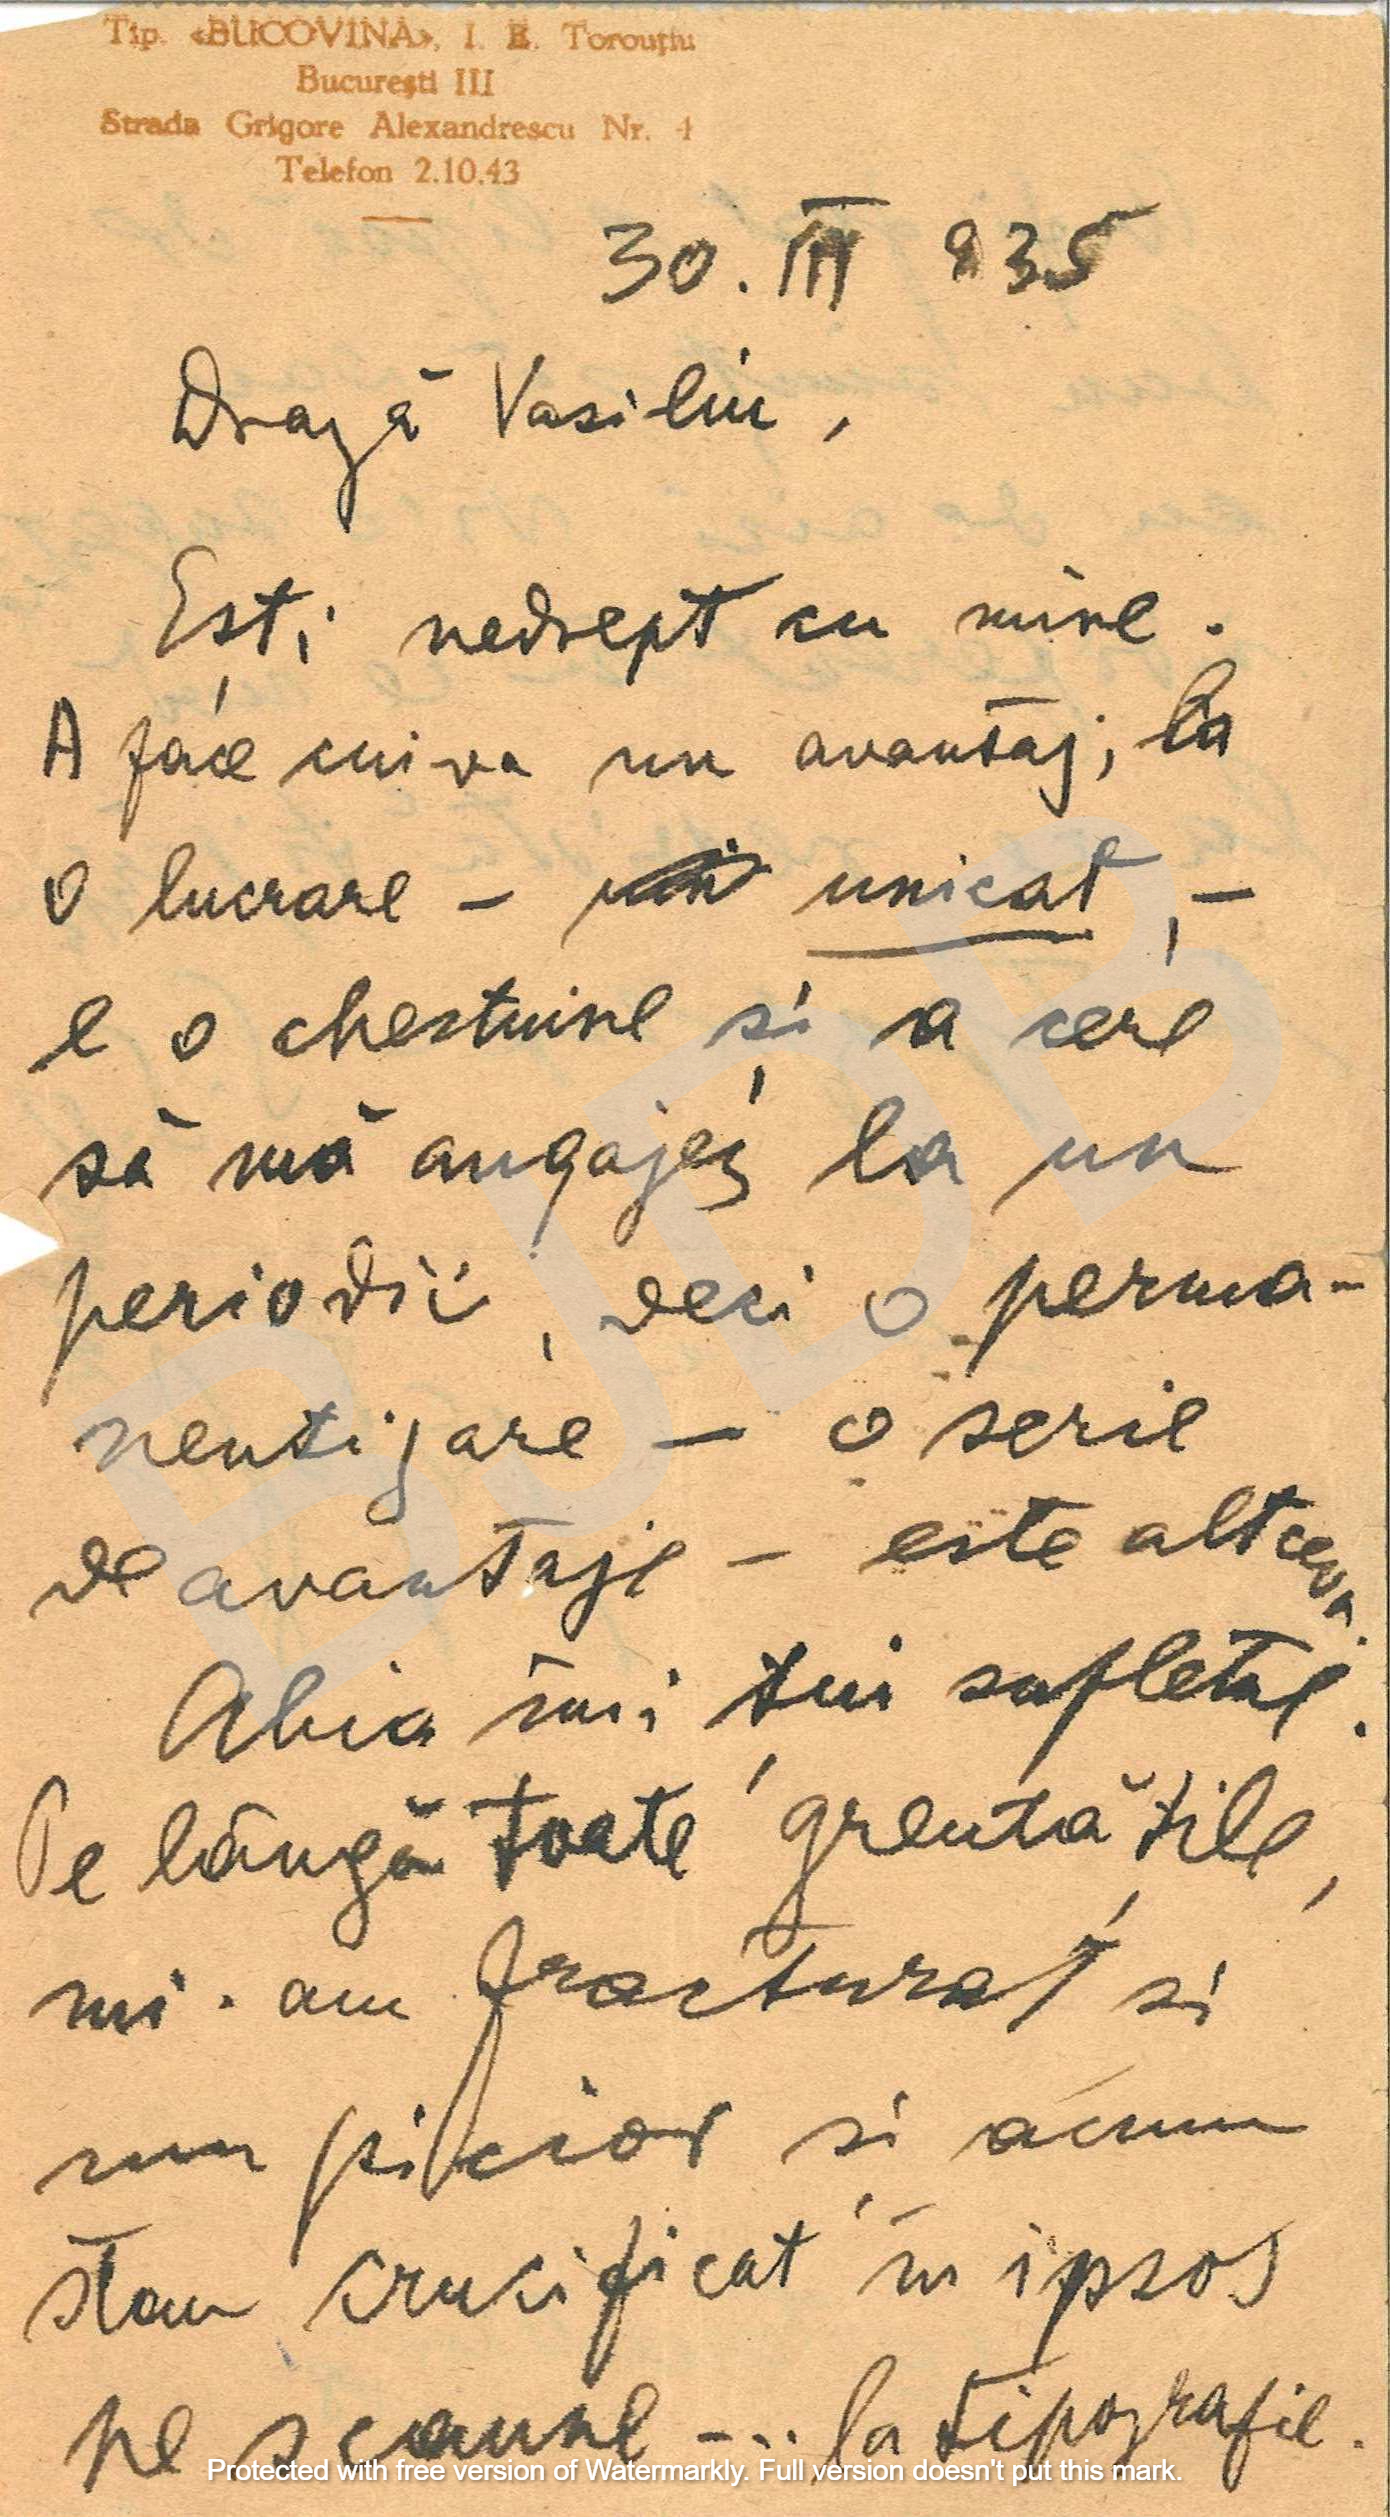 Tip. «BUCOVINA», I. E. Torouțiu
București III
Strada Grigore Alexandrescu Nr. 4
Telefon 2.10.43
30. III 935
Dragă Vasiliu,
Ești nedrept cu mine.
A face cuiva un avantaj, la
o lucrare – unicat, –
e o chestiune și a cere
să mă angajez la un
periodic, deci o perma-
nentizare – o serie
de avantaje – este altceva.
Abia îmi țin sufletul.
Pe lângă toate greutățile,
mi-am fracturat și
un picior și acum
stau crucificat în ipsos
pe scaune ... la tipografie.
BJDB
Protected with free version of Watermarkly. Full version doesn't put this mark.